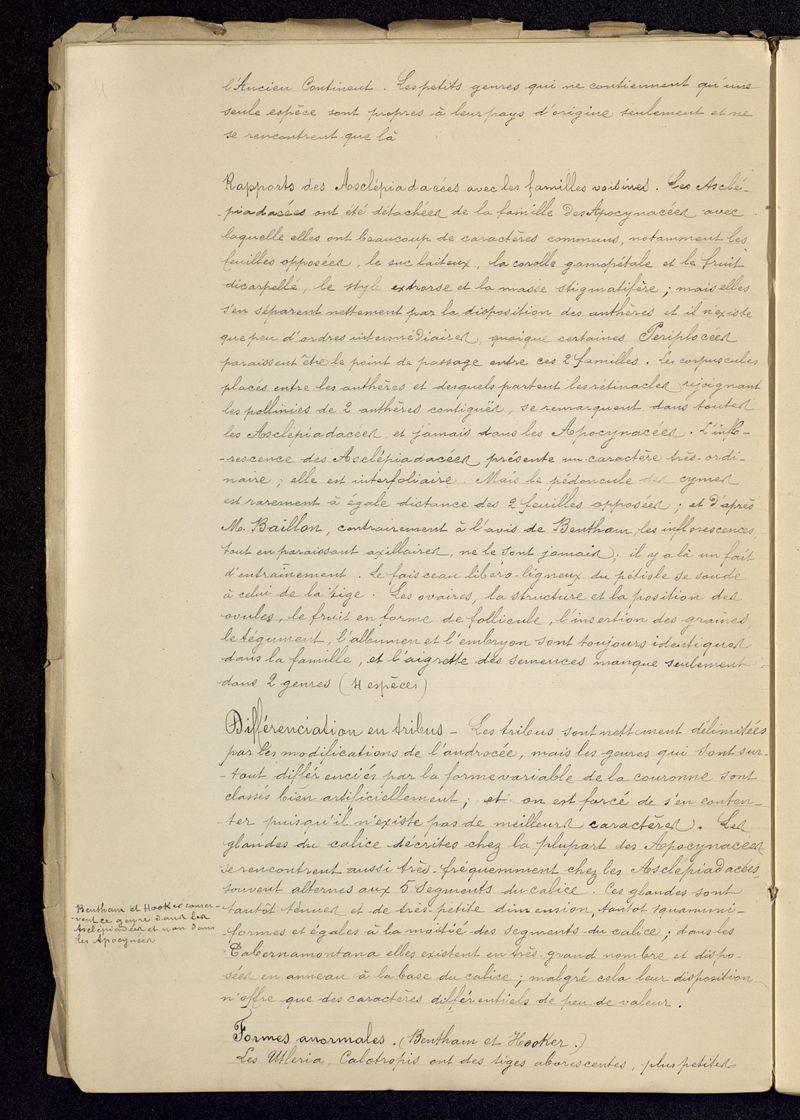 l'Ancien Continent. Les petits genres qui ne contiennent qu'une
seule espèce sont propres à leur pays d'origine seulement et ne
se rencontrent que là
Rapports des Asclépiadacées avec les familles voisines. Les Asclé-
-piadacées ont été détachées de la famille des Apocynacées avec
laquelle elles ont beaucoup de caractères communs, notamment les
feuilles opposées, le suc laiteux, la corolle gamopétale et le fruit
dicarpellé, le style extrorse et la masse stigmatifère ; mais elles
s'en séparent nettement par la disposition des anthères et il n'existe
que peu d'ordres intermédiaires, quoique certaines Periplocées
paraissent être le point de passage entre ces 2 familles. Les corpuscules
placés entre les anthères et desquels partent les rétinacles rejoignant
les pollinies de 2 anthères contiguës, se remarquent dans toutes
les Asclépiadacées et jamais dans les Apocynacées. L'inflo-
-rescence des Asclépiadacées présente un caractère très-ordi-
naire ; elle est interfoliaire. Mais le pédoncule des cymes
est rarement à égale distance des 2 feuilles opposées ; et d'après
M. Baillon, contrairement à l'avis de Bentham, les inflorescences,
tout en paraissant axillaires, ne le sont jamais ; il y a là un fait
d'entraînement. Le faisceau libéro-ligneux du pétiole se soude
à celui de la tige. Les ovaires, la structure et la position des
ovules, le fruit en forme de follicule, l'insertion des graines,
le tégument, l'albumen et l'embryon sont toujours identiques
dans la famille, et l'aigrette des semences manque seulement
dans 2 genres (4 espèces)
Différenciation en tribus - Les tribus sont nettement délimitées
par les modifications de l'androcée, mais les genres qui sont sur-
-tout différenciés par la forme variable de la couronne sont
classés bien artificiellement ; et on est forcé de s'en conten-
-ter puisqu'il n'existe pas de meilleurs caractères. Les
glandes du calice décrites chez la plupart des Apocynacées
se rencontrent aussi très-fréquemment chez les Asclépiadacées,
souvent alternes aux 5 segments du calice. Ces glandes sont
tantôt ténues et de très-petite dimension, tantôt squammi-
-formes et égales à la moitié des segments du calice ; dans les
Tabernamontana elles existent en très grand nombre et dispo-
sées en anneau à la base du calice ; malgré cela leur disposition
n'offre que des caractères différentiels de peu de valeur.
Bentham et Hooker conser-
-vent ce genre dans les
Asclépiadées et non dans
les Apocynées
Formes anormales. (Bentham et Hooker.)
Les Utleria, Calotropis ont des tiges aborescentes, plus petites